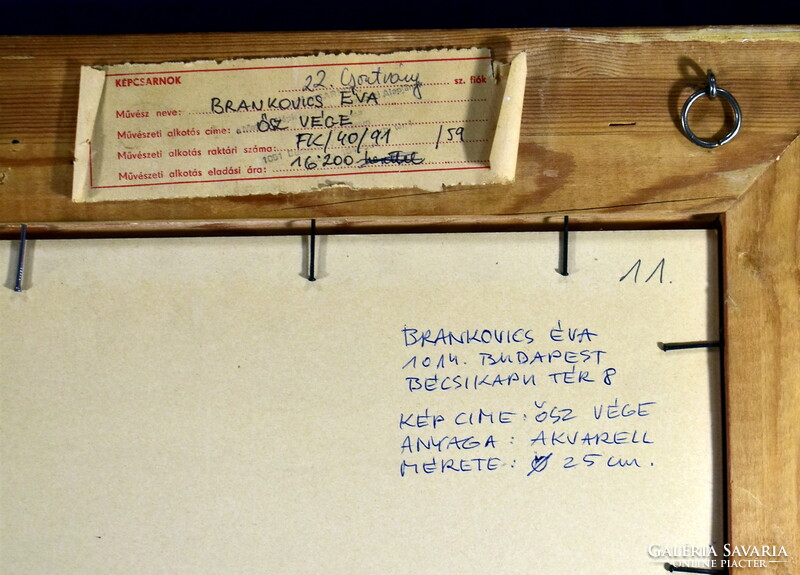 KÉPCSARNOK 22. Csontváry sz. fiók
Művész neve: BRANKOVICS ÉVA
Művészeti alkotás címe: ŐSZ VÉGE
Művészeti alkotás raktári száma: FK/40/91 /59
Művészeti alkotás eladási ára: 16.200
11.
BRANKOVICS ÉVA
1014. BUDAPEST
BÉCSIKAPU TÉR 8
KÉP CIME: ŐSZ VÉGE
ANYAGA: AKVARELL
MÉRETE: Ø 25 cm.
GALÉRIA SAVARIA
ONLINE PIACTÉR